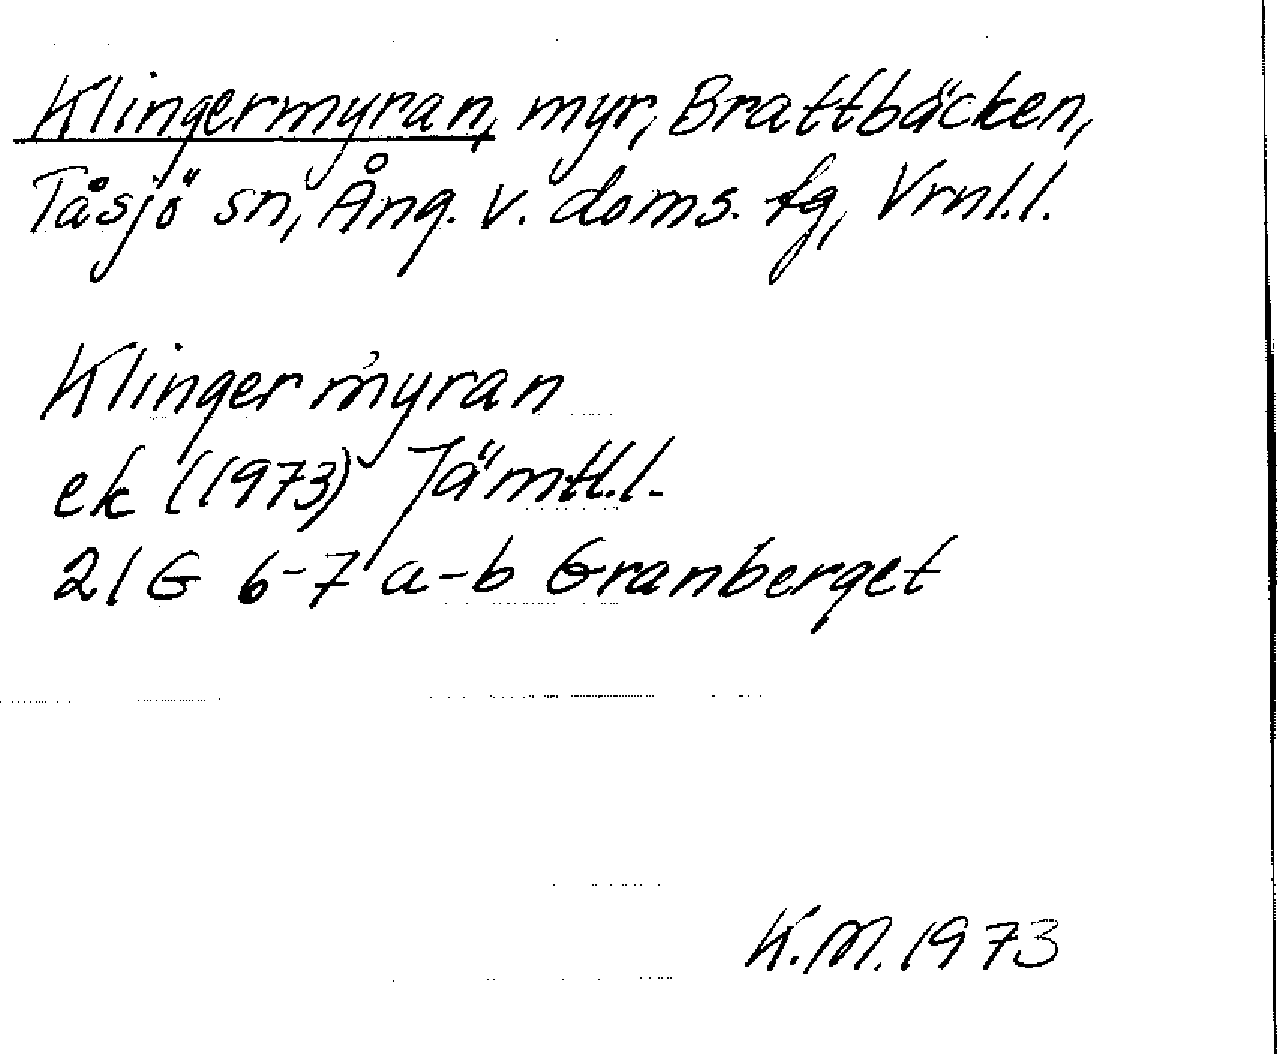 Klingermyran, myr, Brattbäcken,
Tåsjö sn, Ång. v. doms. fg, Vrnl.l.
Klingermyran
ek (1973) Jämtl.l.
21G 6-7 a-b Granberget
K.M. 1973